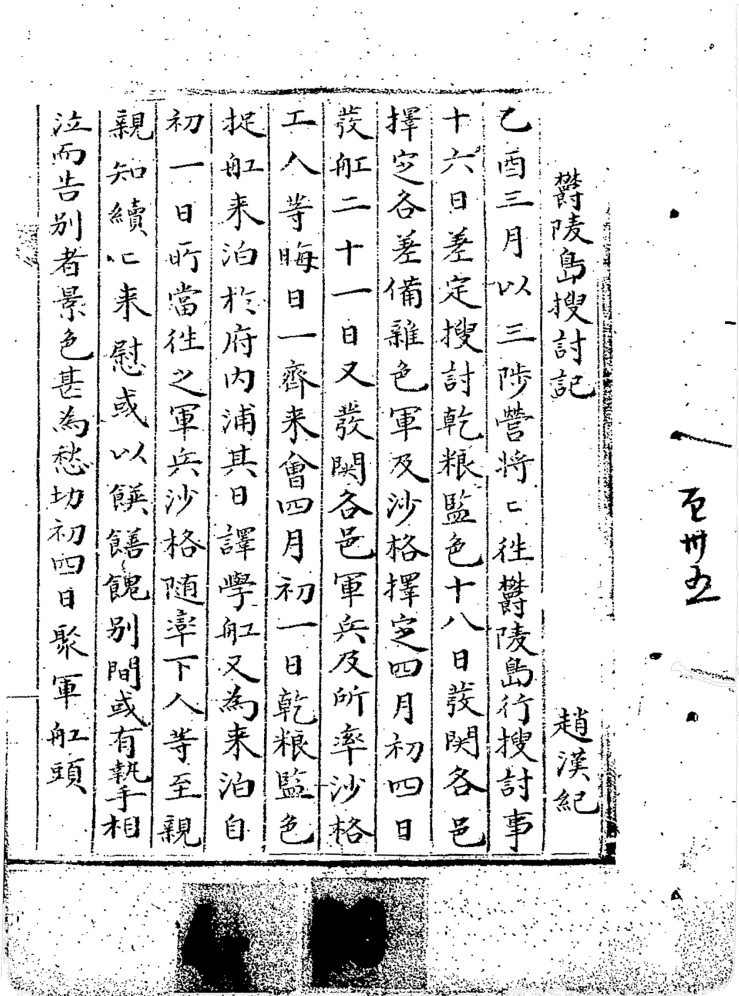 欝陵島搜討記 趙漢紀
乙酉三月以三陟營將〻徃欝陵島行搜討事
十六日差定搜討乾粮監色十八日發関各邑
擇定各差備雜色軍及沙格擇定四月初四日
發舡二十一日又發関各邑軍兵及所率沙格
工人等晦日一齊来會四月初一日乾粮監色
捉舡来泊於府内浦其日譯學舡又為来泊自
初一日所當徃之軍兵沙格随率下人等至親
親知續〻来慰或以饌饍餽别間或有執手相
泣而告别者景色甚為愁切初四日聚軍舡頭
百卅五